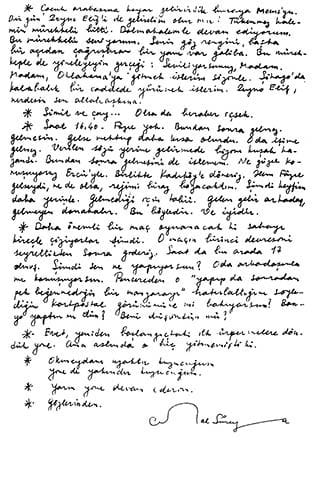 * Çocuk arabasına koyar getirirdik buraya Memo'yu.
Bir gün Zeynep Elçi'yi de getirelim olur mu? Tükenmez kale-
min mürekkebi bitti. Dolmakalemle devam ediyorum.
Bu mürekkebi seviyorum. Senin göz rengini, başka
bir açıdan çağrıştıran bir yanı var galiba. Bu mürek-
keple de yineleyeyim gerçeği: Seviliyorsunuz, Madam.
Madam, Oklahoma'ya gitmek isterim sizinle. Şikago'da
kalabalık bir caddede yürümek isterim. Zeynep Elif,
nerdesin sen allahaşkına.
* Simit ve çay... Olsa da beraber içsek.
* Saat 16.40. Füze yok. Bundan sonra gelmez.
gelmesin. Gelse mektup daha kısa olurdu. Oda içime
gelmez. Verilen sözü yerine getirmede bizim kuşak ha-
Bundan sonra gelmesini de istemem. Ne güzel ko-
nuşuyoruz Birlikte Kadıköy'e döneriz. Hem Füze
gelseydi, ne de olsa, rejimi biraz bozacaktım. Şimdi keyfim
daha yerinde. Gelmediği için tabii. Gelen gelir arkadaş,
gelmeyen Bu böyledir. Ve iyidir.
* Daha önemli bir maç oynanacak ki sahayı
kireçle çiziyorlar şimdi. O maçın birinci devresini
seyrettikten sonra gideriz. Saat da bu arada 17
olmuş. Şimdi sen ne yapıyorsun? Oda arkadaşınla
mı konuşuyorsun. Pencereden o yapıp da sonradan
pek beğenmediğin bir manzarayı "hatırlattığını söyle-
diğin kartpostal görünümüne mi bakıyorsun? Ban-
yo yaptın mı dün? Beni düşündün mü?
* Evet, yeniden başlangıçtaki ilk ürpermelere dön-
dük yine. Ama aslında o hiç yitmemişti ki.
* Okmeydanı uzaktır kuzucuğum
yine de yakındır kuzucuğum.
* Yarın yine devam ederim.
* Gözlerinden.
Cemal Süreya